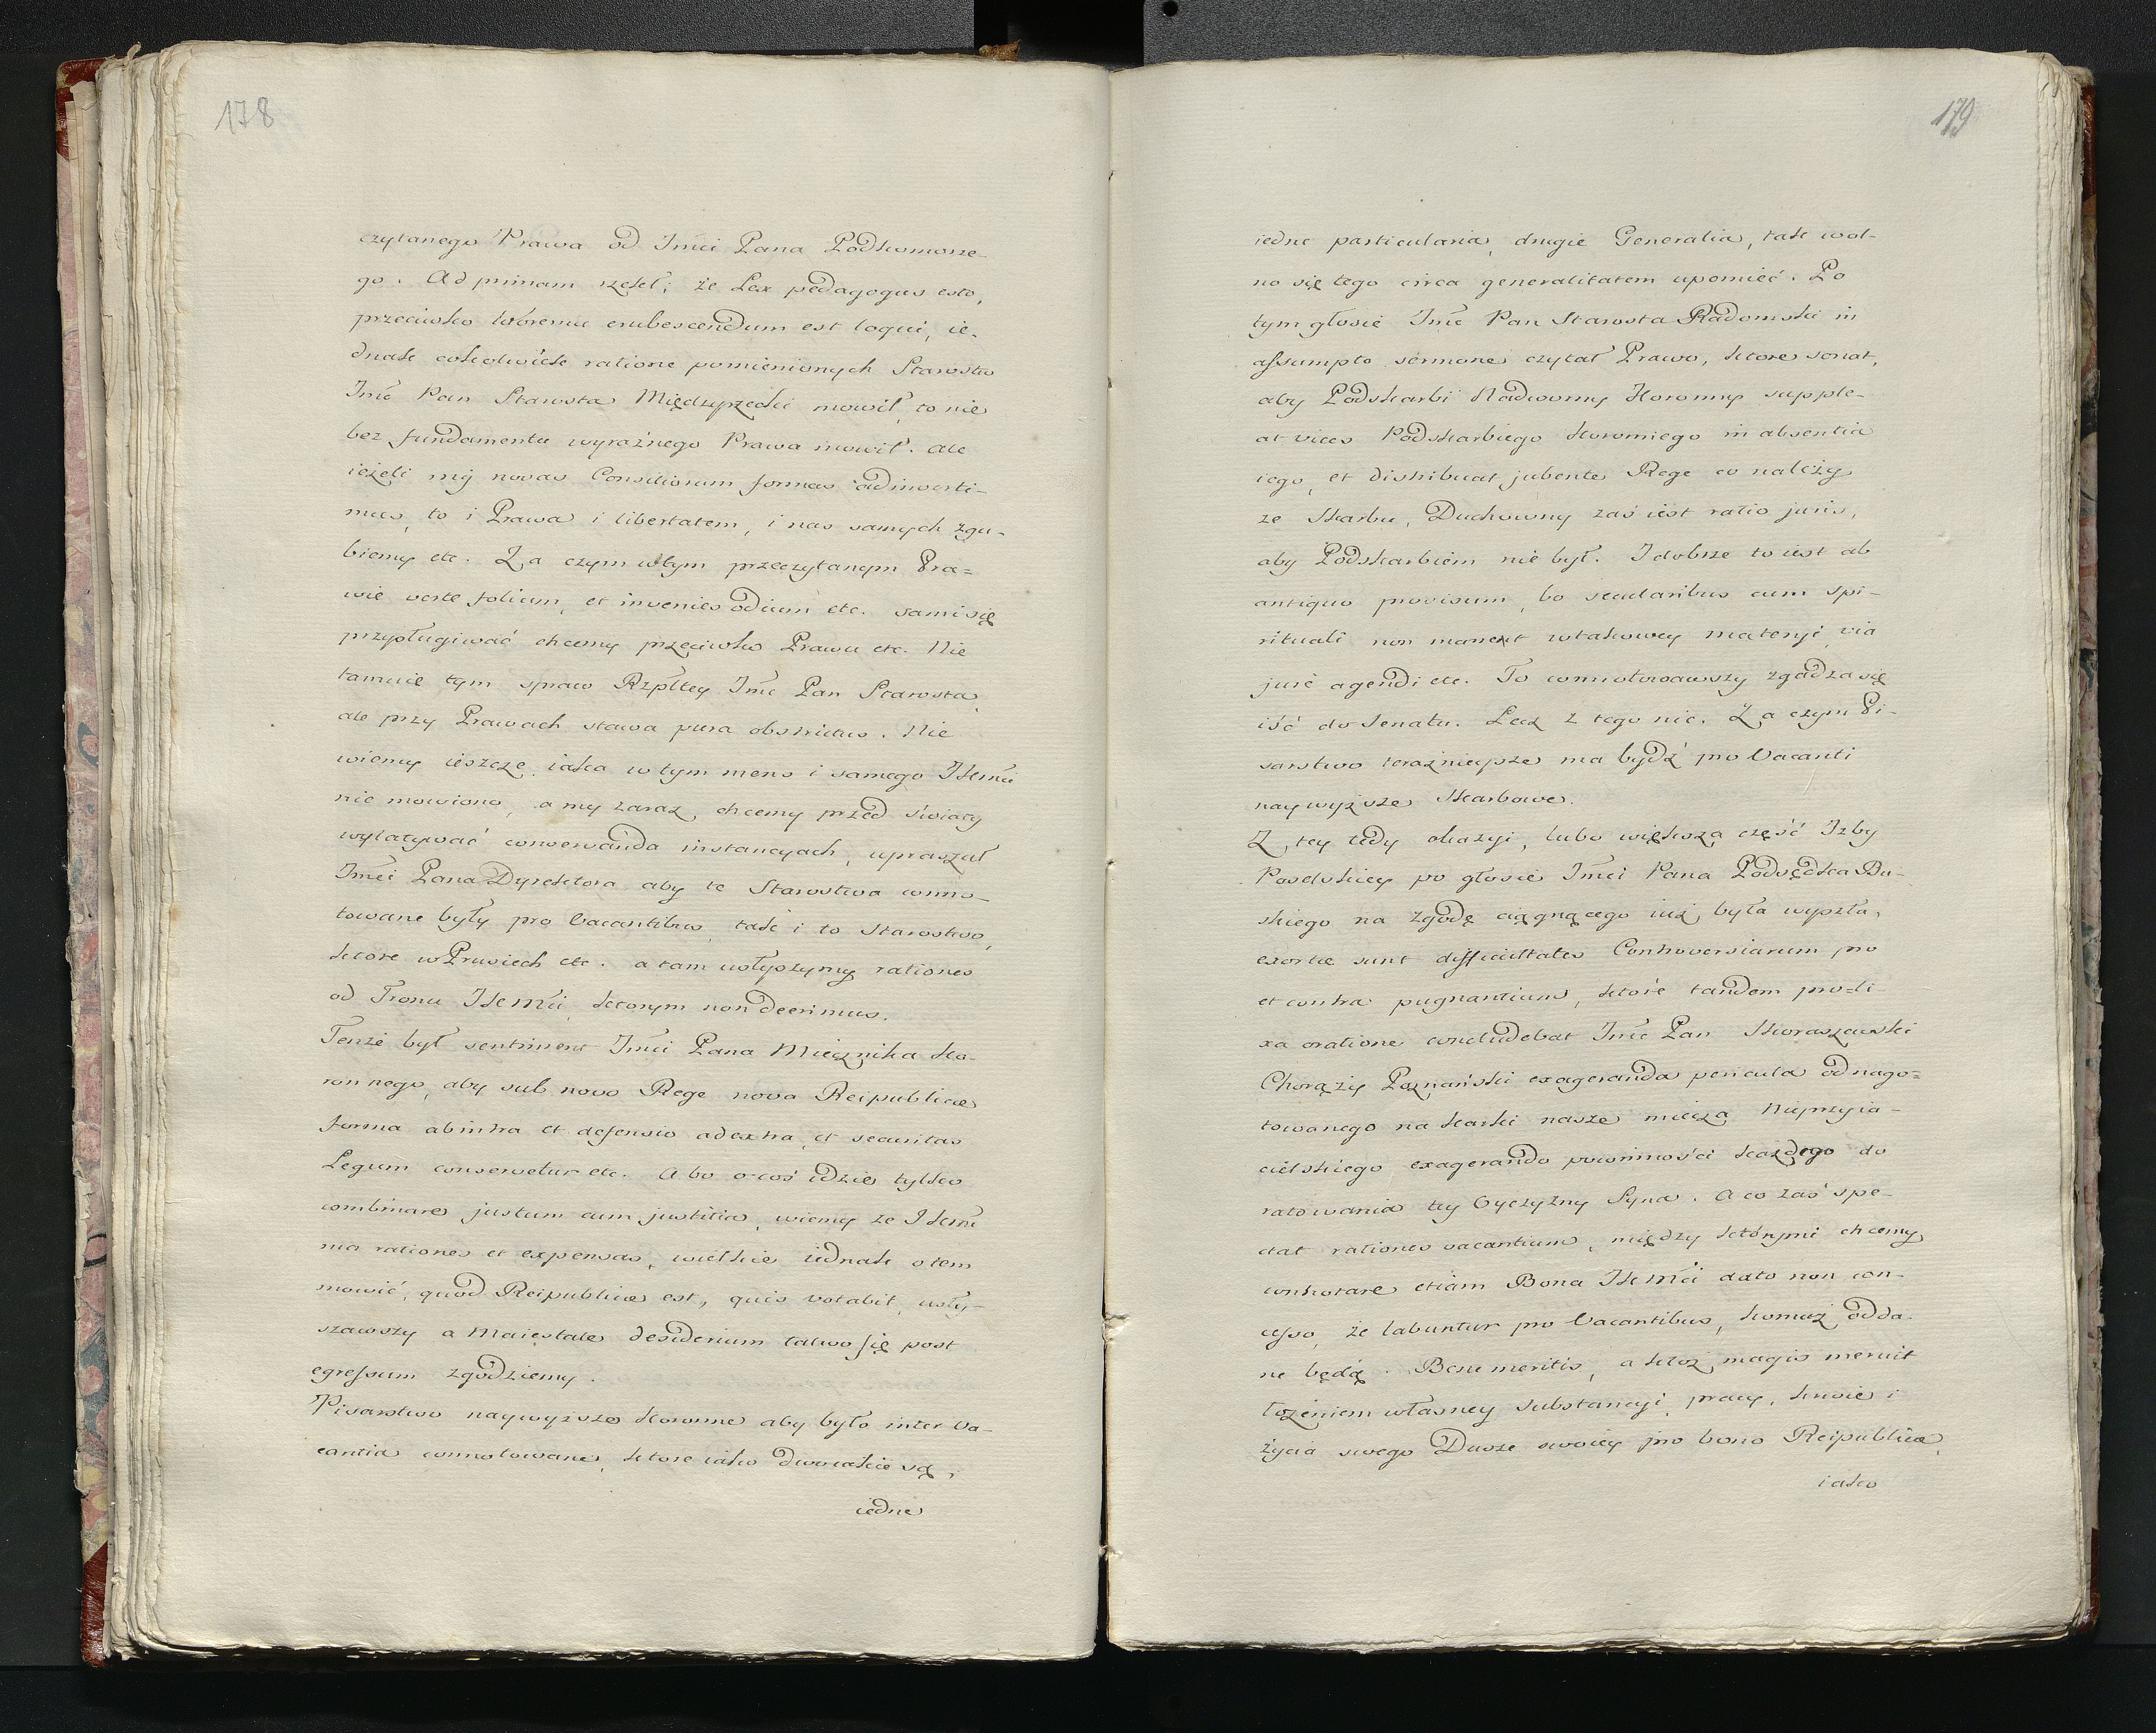 178
czytanego Prawa od Jmći Pana Podkomorze-
go. Ad primam rzekł; że Lex pedagogus esto,
przeciwko któremu erubescendum est loqui, ie-
dnak cokolwiek ratione pomienionych Starostw
Jmć Pan Starosta Międzyrzecki mowił, to nie
bez fundamentu wyraźnego Prawa mowił. ale
ieżeli my novas Consiliorum formas adinveni-
mus, to i Prawa i libertatem, i nas samych zgu-
biemy etc. Za czym w tym przeczytanym Pra=
wie verte folium, et invenies odium etc. sami się
przysługiwać chcemy przeciwko Prawu etc. Nie
tamuie tym spraw Rzpltey Jmć Pan Starosta,
ale przy Prawach stawa pura obstrictus. Nie
wiemy ieszcze iaka w tym mens i samego JKmći
nie mowiono, a my zaraz chcemy przed swiaty
wylatywać conservanda instancyach, upraszał
Jmći Pana Dyrektora aby te Starostwa conno-
towane były pro Vacantibus, tak i to Starostwo,
ktore w Prusiech etc. a tam usłyszymy rationes
od Tronu JKmći, ktorym non deerimus.
Tenże był sentiment Jmći Pana Miecznika Ko-
ronnego, aby sub novo Rege nova Reipublicæ
forma ab intra et defensio ad extra, et securitas
Legum conservetur etc. Abo o coś idzie tylko
combinare justum cum justitia, wiemy ze JKmć
ma rationes et expensas, wielkie iednak o tem
mowić, quod Reipublicæ est, quis votabit, usły-
szawszy a Maiestate desiderium łatwo się post
egressum zgodziemy.
Pisarstwo naywyższe koronne aby było inter Va-
cantia connotowane, ktore iako dwoiakie są,
iedne
179
iedne particularia, drugie Generalia, tak wol-
no się tego circa generalitatem upomieć. Po
tym głosie Jmć Pan Starosta Radomski in
assumpto sermone czytał Prawo, ktore sonat,
aby Podskarbi Nadworny Koronny supple-
at vices Podskarbiego koronnego in absentia
iego, et distribuat jubente Rege co należy
ze Skarbu, Duchowny zaś iest ratio juris,
aby Podskarbiem nie był. I dobrze to iest ab
antiquo provisum, bo secularibus cum spi-
rituali non manent w takowey materyi via
jure agendi etc. To connotowawszy zgadza się
iść do Senatu. Lecz z tego nic. Za czym Pi-
sarstwo teraznieysze ma bydź pro Vacanti
naywyższe Skarbowe.
Z tey tedy okazyi, lubo większa część Izby
Poselskiey po głosie Jmći Pana Podsędka Bu-
skiego na zgodę ciągnącego iuż była wyszła,
exortæ sunt difficultates Controversiarum pro
et contra pugnantium, ktore tandem proli-
xa oratione concludebat Jmć Pan Skoraszewski
Chorąży Poznański exageranda pericula od nago=
towanego na karki nasze miecza Nieprzyia-
cielskiego exagerando powinności każdego do
ratowania tey Oyczyzny Syna. A co zaś spe-
ctat rationes vacantium, między ktorymi chcemy
connotare etiam Bona JKmći dato non con-
cesso, że labuntur pro Vacantibus, komuż odda-
ne będą. Bene meritis, a ktoż magis meruit
łożeniem własney substancyi, pracy, krwie i
życia swego Dusze swoiey pro bono Reipublicæ,
iako